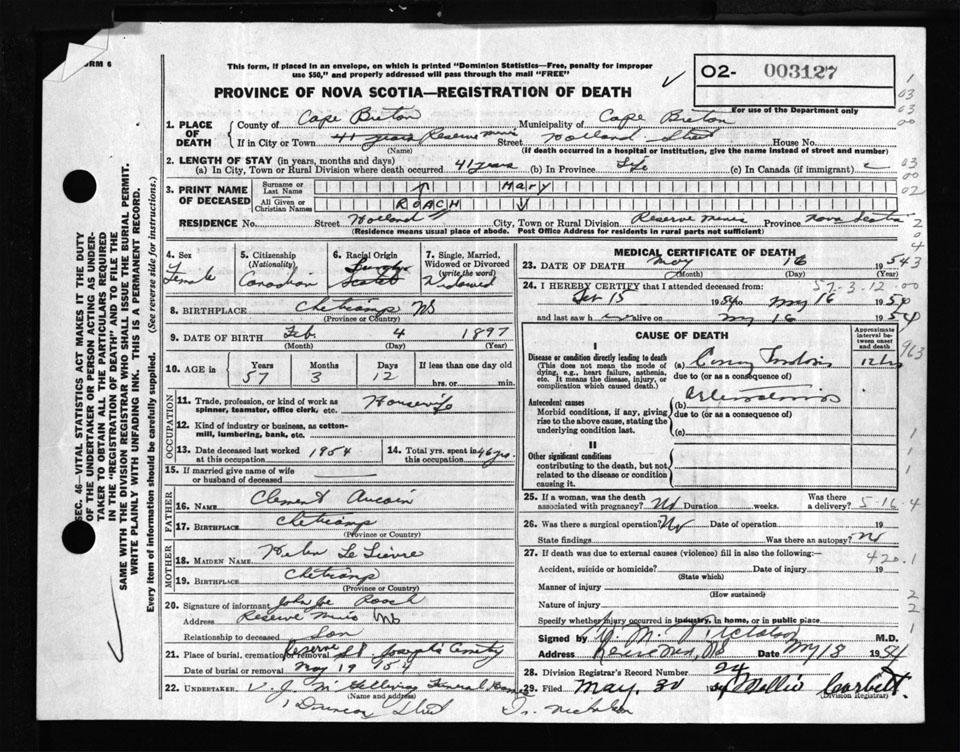 FORM 6
This form, if placed in an envelope, on which is printed "Dominion Statistics—Free, penalty for improper
use $50," and properly addressed will pass through the mail "FREE"
PROVINCE OF NOVA SCOTIA—REGISTRATION OF DEATH
O2- 003127
For use of the Department only
1. PLACE OF DEATH
County of Cape Breton Municipality of Cape Breton
If in City or Town 41 years Reserve Mines Street Holland Street House No.
(Name) (If death occurred in a hospital or institution, give the name instead of street and number)
2. LENGTH OF STAY (in years, months and days)
(a) In City, Town or Rural Division where death occurred 41 years (b) In Province Life (c) In Canada (if immigrant)
3. PRINT NAME OF DECEASED
Surname or Last Name Mary
All Given or Christian Names ROACH
RESIDENCE No. Street Holland City, Town or Rural Division Reserve Mines Province Nova Scotia
(Residence means usual place of abode. Post Office Address for residents in rural parts not sufficient)
4. Sex
Female
5. Citizenship (Nationality)
Canadian
6. Racial Origin
7. Single, Married, Widowed or Divorced (write the word)
Widowed
8. BIRTHPLACE Cheticamp NS
(Province or Country)
9. DATE OF BIRTH Feb 4 1897
(Month) (Day) (Year)
10. AGE in Years Months Days If less than one day old
57 3 12 hrs. or min.
OCCUPATION
11. Trade, profession, or kind of work as
spinner, teamster, office clerk, etc. Housewife
12. Kind of industry or business, as cotton-
mill, lumbering, bank, etc.
13. Date deceased last worked at this occupation 1954
14. Total yrs. spent in this occupation 46 yrs.
15. If married give name of wife
or husband of deceased
FATHER
16. Name Clement Aucoin
17. Birthplace Cheticamp
(Province or Country)
MOTHER
18. Maiden Name Helen Le Lievre
19. Birthplace Cheticamp
(Province or Country)
20. Signature of informant John Joe Roach
Address Reserve Mines NS
Relationship to deceased Son
21. Place of burial, cremation or removal Reserve St Joseph's
Date of burial or removal May 19 1954
22. UNDERTAKER V. J. Funeral Home
(Name and address)
MEDICAL CERTIFICATE OF DEATH
23. DATE OF DEATH May 16 1954
(Month) (Day) (Year)
57-3-12
24. I HEREBY CERTIFY that I attended deceased from:
15 1954 to May 16 1954
and last saw h alive on May 16 1954
CAUSE OF DEATH
Approximate interval between onset and death
I
Disease or condition directly leading to death
(This does not mean the mode of
dying, e.g., heart failure, asthenia,
etc. It means the disease, injury, or
complication which caused death.)
(a)
due to (or as a consequence of)
Antecedent causes
Morbid conditions, if any, giving
rise to the above cause, stating the
underlying condition last.
(b)
due to (or as a consequence of)
(c)
II
Other significant conditions
contributing to the death, but not
related to the disease or condition
causing it.
25. If a woman, was the death
associated with pregnancy? No Duration weeks. Was there a delivery? 5-16-4
26. Was there a surgical operation? No Date of operation 19
State findings Was there an autopsy? No
27. If death was due to external causes (violence) fill in also the following:— 420.1
Accident, suicide or homicide? Date of injury 19
(State which)
Manner of injury
(How sustained)
Nature of injury
Specify whether injury occurred in industry, in home, or in public place
Signed by M.D.
Address Date May 18 1954
28. Division Registrar's Record Number 24
29. Filed May. 30 Mollie Corbett.
(Division Registrar)
SEC. 46—VITAL STATISTICS ACT MAKES IT THE DUTY
OF THE UNDERTAKER OR PERSON ACTING AS UNDER-
TAKER TO OBTAIN ALL THE PARTICULARS REQUIRED
IN THE "REGISTRATION OF DEATH" AND TO FILE THE
SAME WITH THE DIVISION REGISTRAR WHO SHALL ISSUE THE BURIAL PERMIT.
WRITE PLAINLY WITH UNFADING INK. THIS IS A PERMANENT RECORD.
Every item of information should be carefully supplied. (See reverse side for instructions).